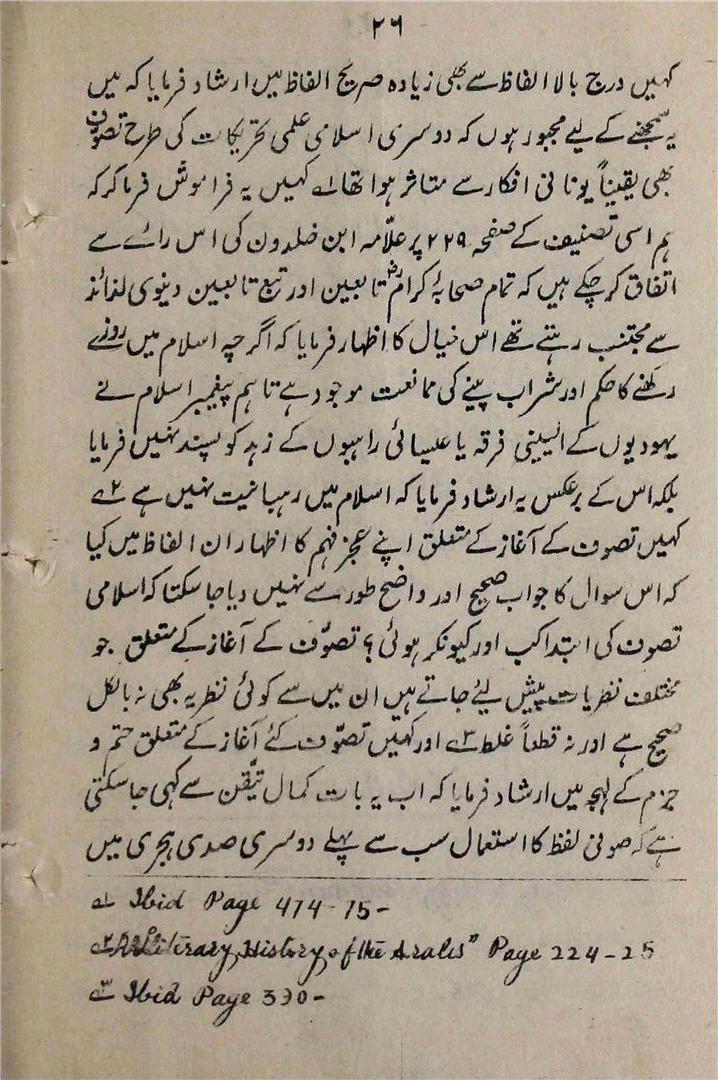 ۲۶
کہیں درج بالا الفاظ سے بھی زیادہ صریح الفاظ میں ارشاد فرمایا کہ میں
یہ سمجھنے کے لیے مجبور ہوں کہ دوسری اسلامی علمی تحریکات کی طرح تصوف
بھی یقیناً یونانی افکار سے متاثر ہوا تھا ۱؎ کہیں یہ فراموش فرما کر کہ
ہم اسی تصنیف کے صفحہ ۲۲۹ پر علامہ ابن خلدون کی اس رائے سے
اتفاق کر چکے ہیں کہ تمام صحابۂ کرامؓ تابعین اور تبع تابعین دینوی لذائذ
سے مجتنب رہتے تھے اس خیال کا اظہار فرمایا کہ اگرچہ اسلام میں روزے
رکھنے کا حکم اور شراب پینے کی ممانعت موجود ہے تاہم پیغمبر اسلام نے
یہودیوں کے ایسینی فرقہ یا عیسائی راہبوں کے زہد کو پسند نہیں فرمایا
بلکہ اس کے برعکس یہ ارشاد فرمایا کہ اسلام میں رہبانیت نہیں ہے ۲؎
کہیں تصوف کے آغاز کے متعلق اپنے عجز فہم کا اظہار ان الفاظ میں کیا
کہ اس سوال کا جواب صحیح اور واضح طور سے نہیں دیا جا سکتا کہ اسلامی
تصوف کی ابتدا کب اور کیونکر ہوئی؟ تصوّف کے آغاز کے متعلق جو
مختلف نظریات پیش کئے جاتے ہیں ان میں سے کوئی نظریہ بھی نہ بالکل
صحیح ہے اور نہ قطعاً غلط ۳؎ اور کہیں تصوّف کے آغاز کے متعلق حتم و
جزم کے لہجہ میں ارشاد فرمایا کہ اب یہ بات کمال تیقّن سے کہی جا سکتی
ہے کہ صوفی لفظ کا استعمال سب سے پہلے دوسری صدی ہجری میں
۱؎ Ibid Page 414-15-
۲؎ "A Literary History of the Arabs" Page 224-25
۳؎ Ibid Page 390-